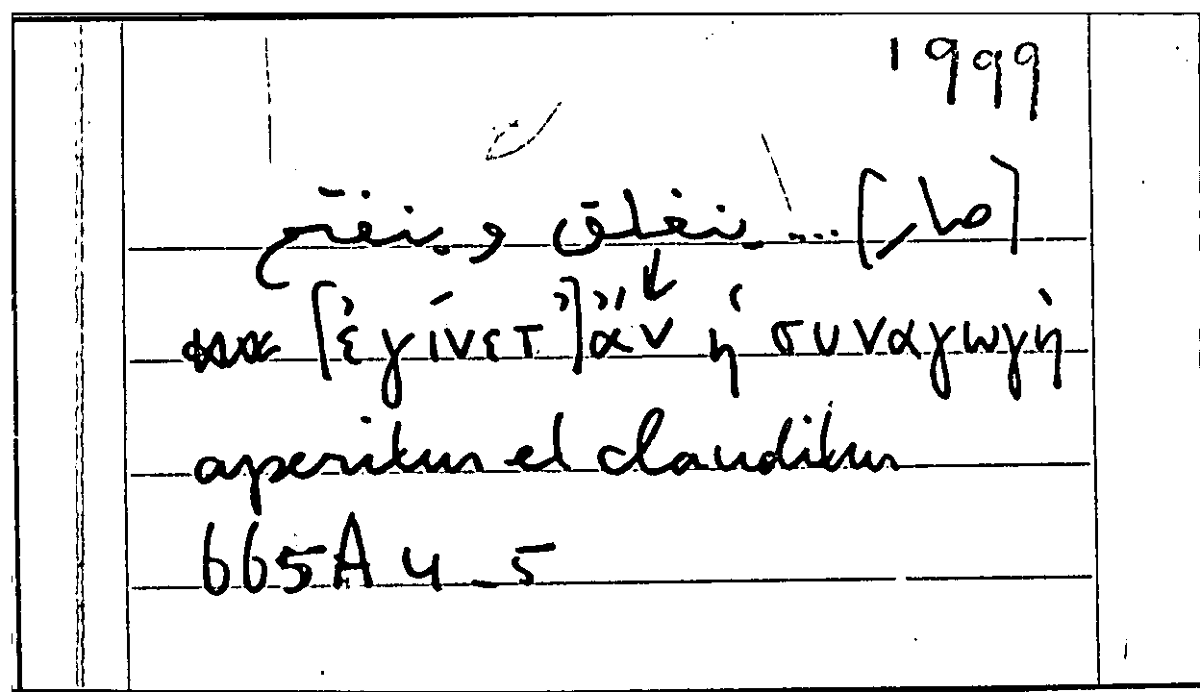 1999
[صار] .... ينغلق وينفتح
[ἐγίνετ'] ἂν ἡ συναγωγὴ
aperitur et clauditur
665A 4-5